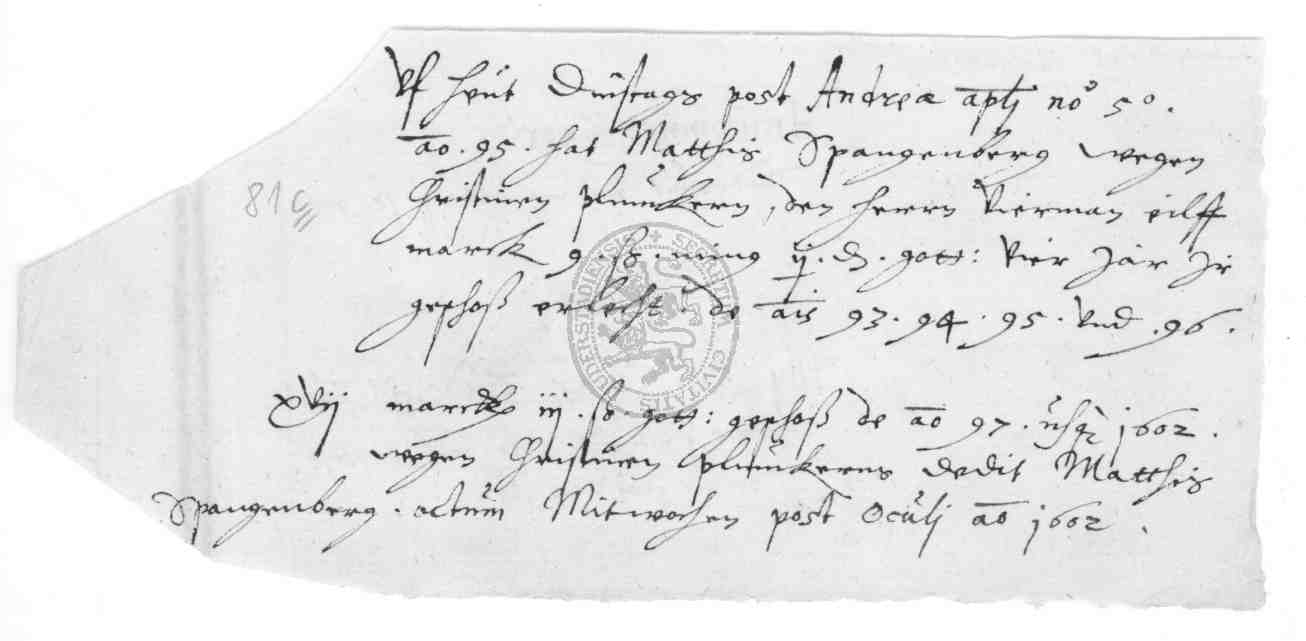 Vf heut Dinstags post Andreæ apl̄j no͞ 5°.
ao͞. 95. hat Matthis Spangenberg wegen
Christinen plunckern, den herrn Vierman eilff
81c
marck 9. ß. ij. ₰. gott: Vier Jar Jr
geschoß erlecht. de ai͞s 93. 94. 95. Vnd. 96.
xvij marck iij. ß gott: geschoß de ao͞ 97. usq 1602.
wegen Christinen plunckerns dedit Matthis
Spangenberg. actum Mitwochen post Oculj ao͞ 1602.
SECRETVM CIVITATIS DUDERSTADIENSIS